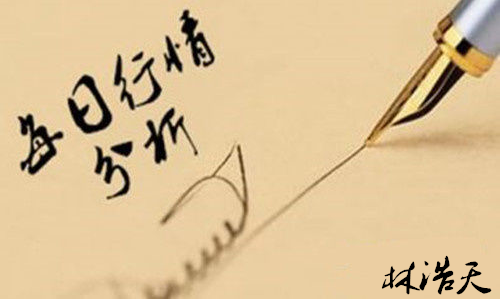 每日行情
分析
林浩天